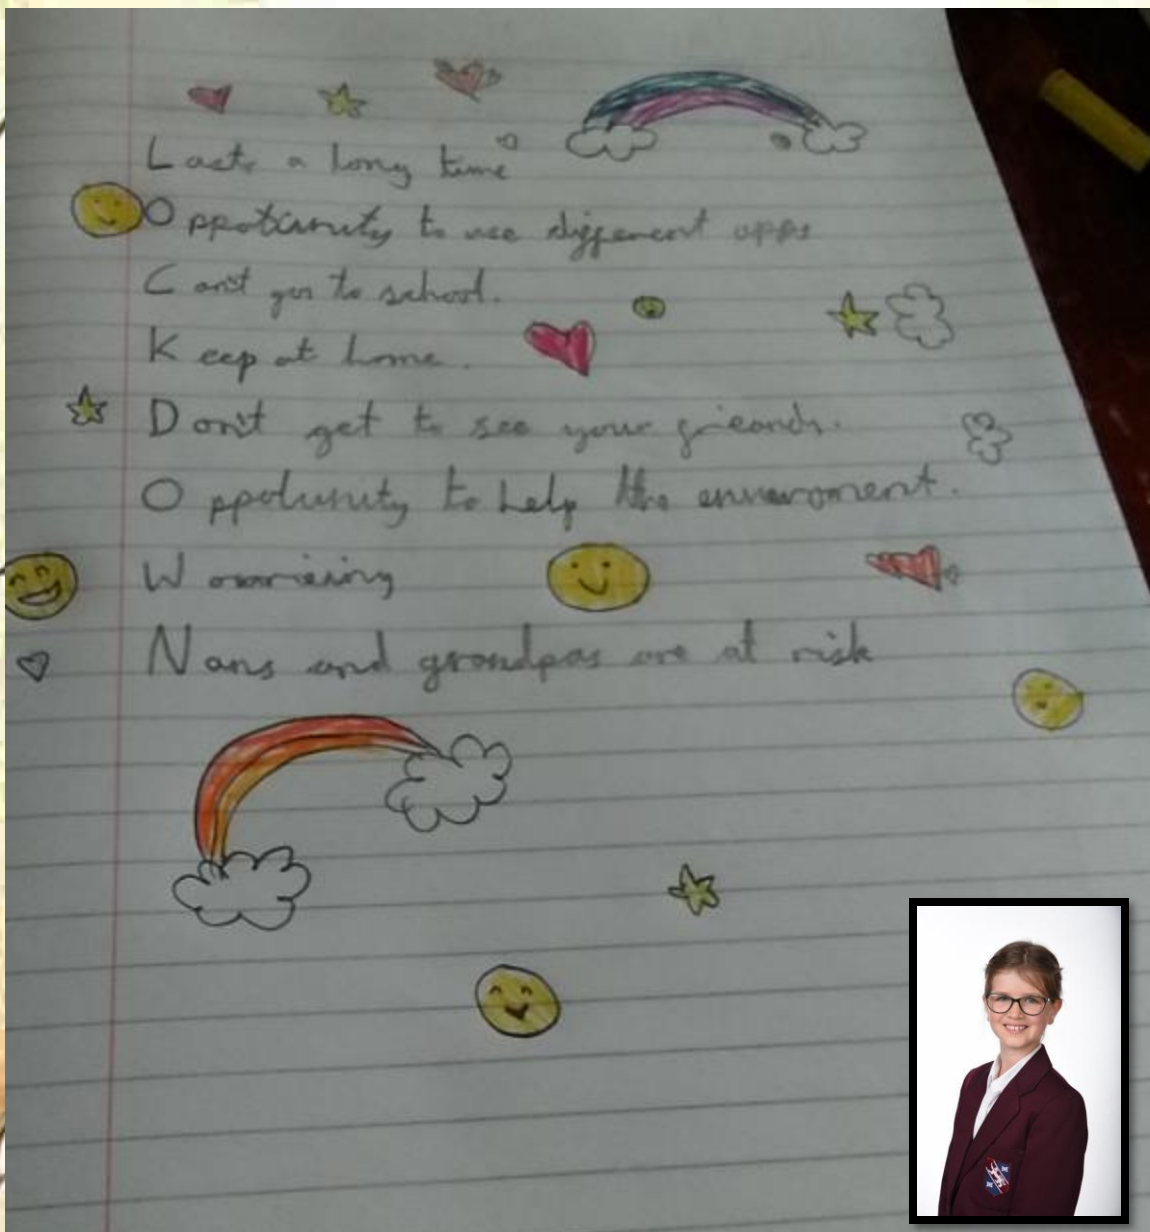 Lasts a long time
Oppotunity to use different apps
Can't go to school.
Keep at home.
Don't get to see your frieands.
Oppotunity to help the enviroment.
Worrieing
Nans and grandpas are at risk